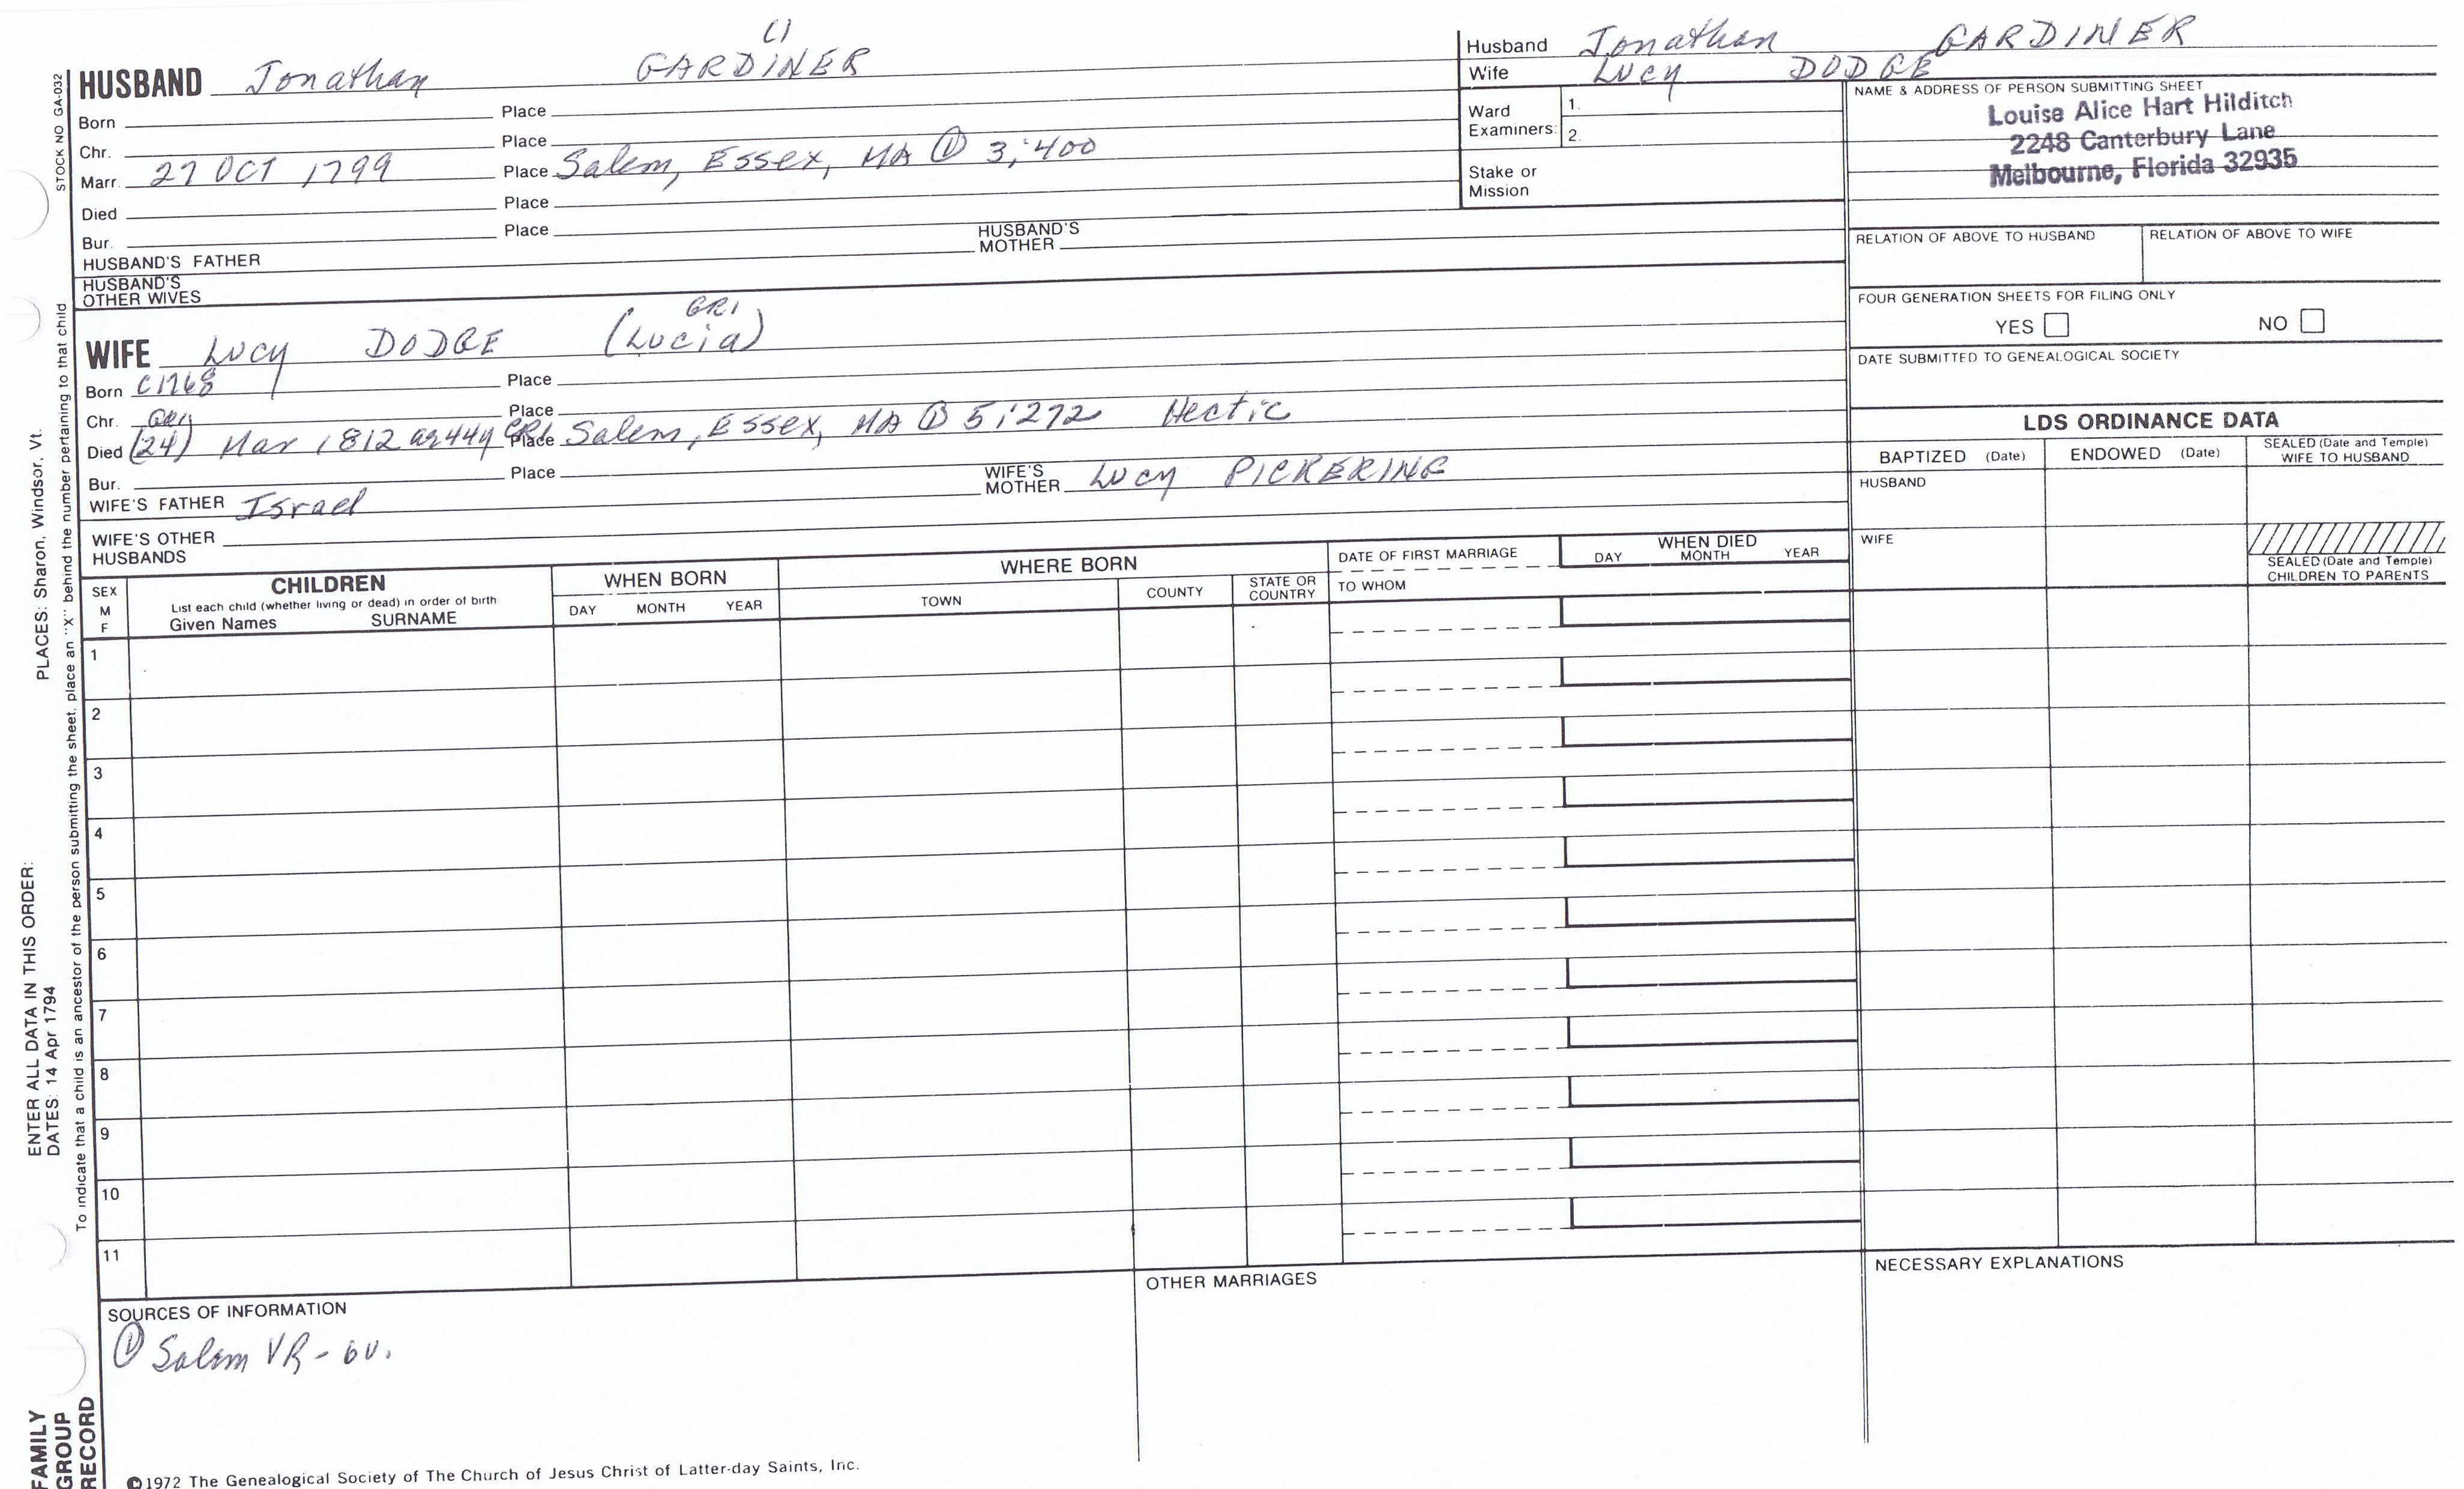 (1)
HUSBAND Jonathan GARDINER
Born Place
Chr. Place
Marr. 27 OCT 1799 Place Salem, Essex, MA ① 3:400
Died Place
Bur. Place
HUSBAND'S FATHER HUSBAND'S MOTHER
HUSBAND'S OTHER WIVES
GR1
WIFE Lucy DODGE (Lucia)
Born C1768 Place
Chr. Place
GR1
Died (24) Mar 1812 ag 44y GR1 Place Salem, Essex, MA ① 5:272 Hectic
Bur. Place
WIFE'S FATHER Israel WIFE'S MOTHER Lucy PICKERING
WIFE'S OTHER HUSBANDS
Husband Jonathan GARDINER
Wife Lucy DODGE
Ward Examiners: 1.
2.
Stake or Mission
NAME & ADDRESS OF PERSON SUBMITTING SHEET
Louise Alice Hart Hilditch
2248 Canterbury Lane
Melbourne, Florida 32935
RELATION OF ABOVE TO HUSBAND RELATION OF ABOVE TO WIFE
FOUR GENERATION SHEETS FOR FILING ONLY
YES NO
DATE SUBMITTED TO GENEALOGICAL SOCIETY
LDS ORDINANCE DATA
BAPTIZED (Date) ENDOWED (Date) SEALED (Date and Temple) WIFE TO HUSBAND
HUSBAND
WIFE
SEALED (Date and Temple)
CHILDREN TO PARENTS
SEX
M
F
CHILDREN
List each child (whether living or dead) in order of birth
Given Names SURNAME
WHEN BORN
DAY MONTH YEAR
WHERE BORN
TOWN COUNTY STATE OR COUNTRY
DATE OF FIRST MARRIAGE
TO WHOM
WHEN DIED
DAY MONTH YEAR
1
2
3
4
5
6
7
8
9
10
11
SOURCES OF INFORMATION
① Salem VR - 6v.
OTHER MARRIAGES
NECESSARY EXPLANATIONS
©1972 The Genealogical Society of The Church of Jesus Christ of Latter-day Saints, Inc.
STOCK NO GA-032
To indicate that a child is an ancestor of the person submitting the sheet, place an "X" behind the number pertaining to that child
ENTER ALL DATA IN THIS ORDER:
DATES: 14 Apr 1794
PLACES: Sharon, Windsor, Vt.
FAMILY
GROUP
RECORD